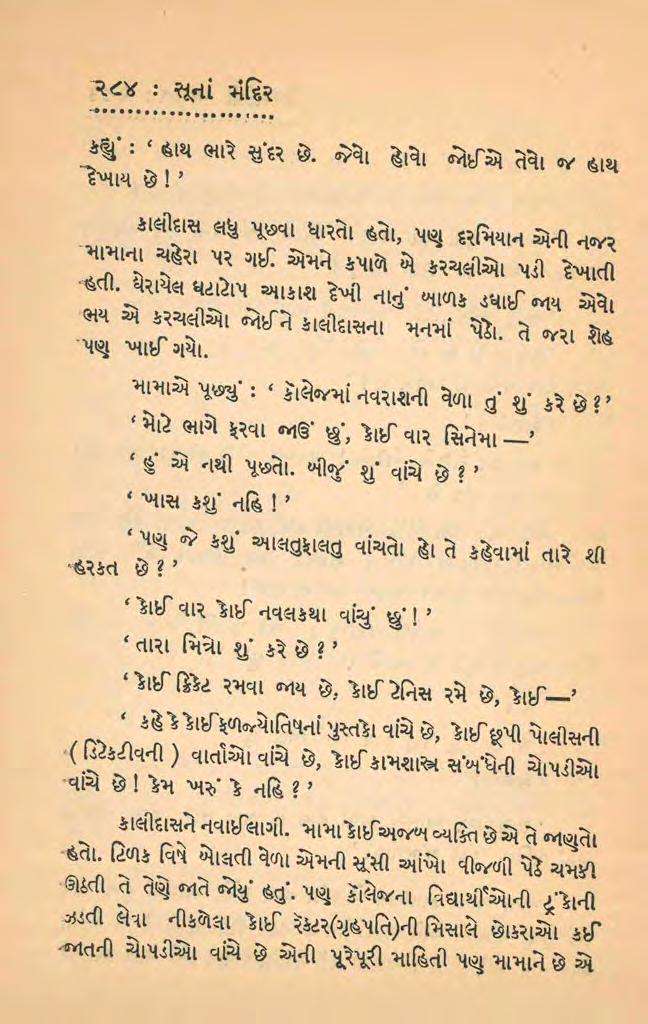 ૨૮૪ : સૂનાં મંદિર
કહ્યું : ‘ હાથ ભારે સુંદર છે. જેવો હોવો જોઈએ તેવો જ હાથ
દેખાય છે ! ’
કાલીદાસ લધુ પૂછવા ધારતો હતો, પણ દરમિયાન એની નજર
મામાના ચહેરા પર ગઈ. એમને કપાળે બે કરચલીઓ પડી દેખાતી
હતી. ઘેરાયેલ ઘટાટોપ આકાશ દેખી નાનું બાળક ડધાઈ જાય એવો
ભય એ કરચલીઓ જોઈને કાલીદાસના મનમાં પેઠો. તે જરા શેહ
પણ ખાઈ ગયો.
મામાએ પૂછ્યું : ‘ કૉલેજમાં નવરાશની વેળા તું શું કરે છે ? ’
‘ મોટે ભાગે ફરવા જાઉં છું, કોઈ વાર સિનેમા — ’
‘ હું એ નથી પૂછતો. બીજું શું વાંચે છે ? ’
‘ ખાસ કશું નહિ ! ’
‘ પણ જે કશું આલતુફાલતુ વાંચતો હો તે કહેવામાં તારે શી
હરકત છે ? ’
‘ કોઈ વાર કોઈ નવલકથા વાંચું છું ! ’
‘ તારા મિત્રો શું કરે છે ? ’
‘ કોઈ ક્રિકેટ રમવા જાય છે, કોઈ ટેનિસ રમે છે, કોઈ— ’
‘ કહે કે કોઈ ફળજ્યોતિષનાં પુસ્તકો વાંચે છે, કોઈ છૂપી પોલીસની
( ડિટેકટીવની ) વાર્તાઓ વાંચે છે, કોઈ કામશાસ્ત્ર સંબંધેની ચોપડીઓ
વાંચે છે ! કેમ ખરું કે નહિ ? ’
કાલીદાસને નવાઈ લાગી. મામા કોઈ અજબ વ્યક્તિ છે એ તે જાણતો
હતો. ટિળક વિષે બોલતી વેળા એમની સૂંસી આંખો વીજળી પેઠે ચમકી
ઊઠતી તે તેણે જાતે જોયું હતું. પણ કૉલેજના વિદ્યાર્થીઓની ટ્રંકોની
ઝડતી લેવા નીકળેલા કોઈ રૅક્ટર(ગૃહપતિ)ની મિસાલે છોકરાઓ કઈ
જાતની ચોપડીઓ વાંચે છે એની પૂરેપૂરી માહિતી પણ મામાને છે એ